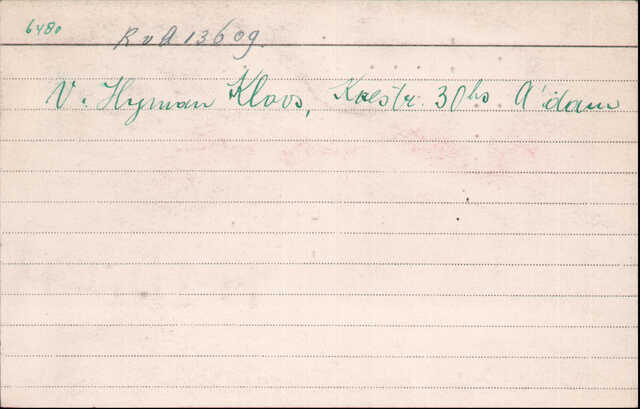 6480
R v A 13609.
V. Hyman Kloos, Kaestr. 30 hs A'dam